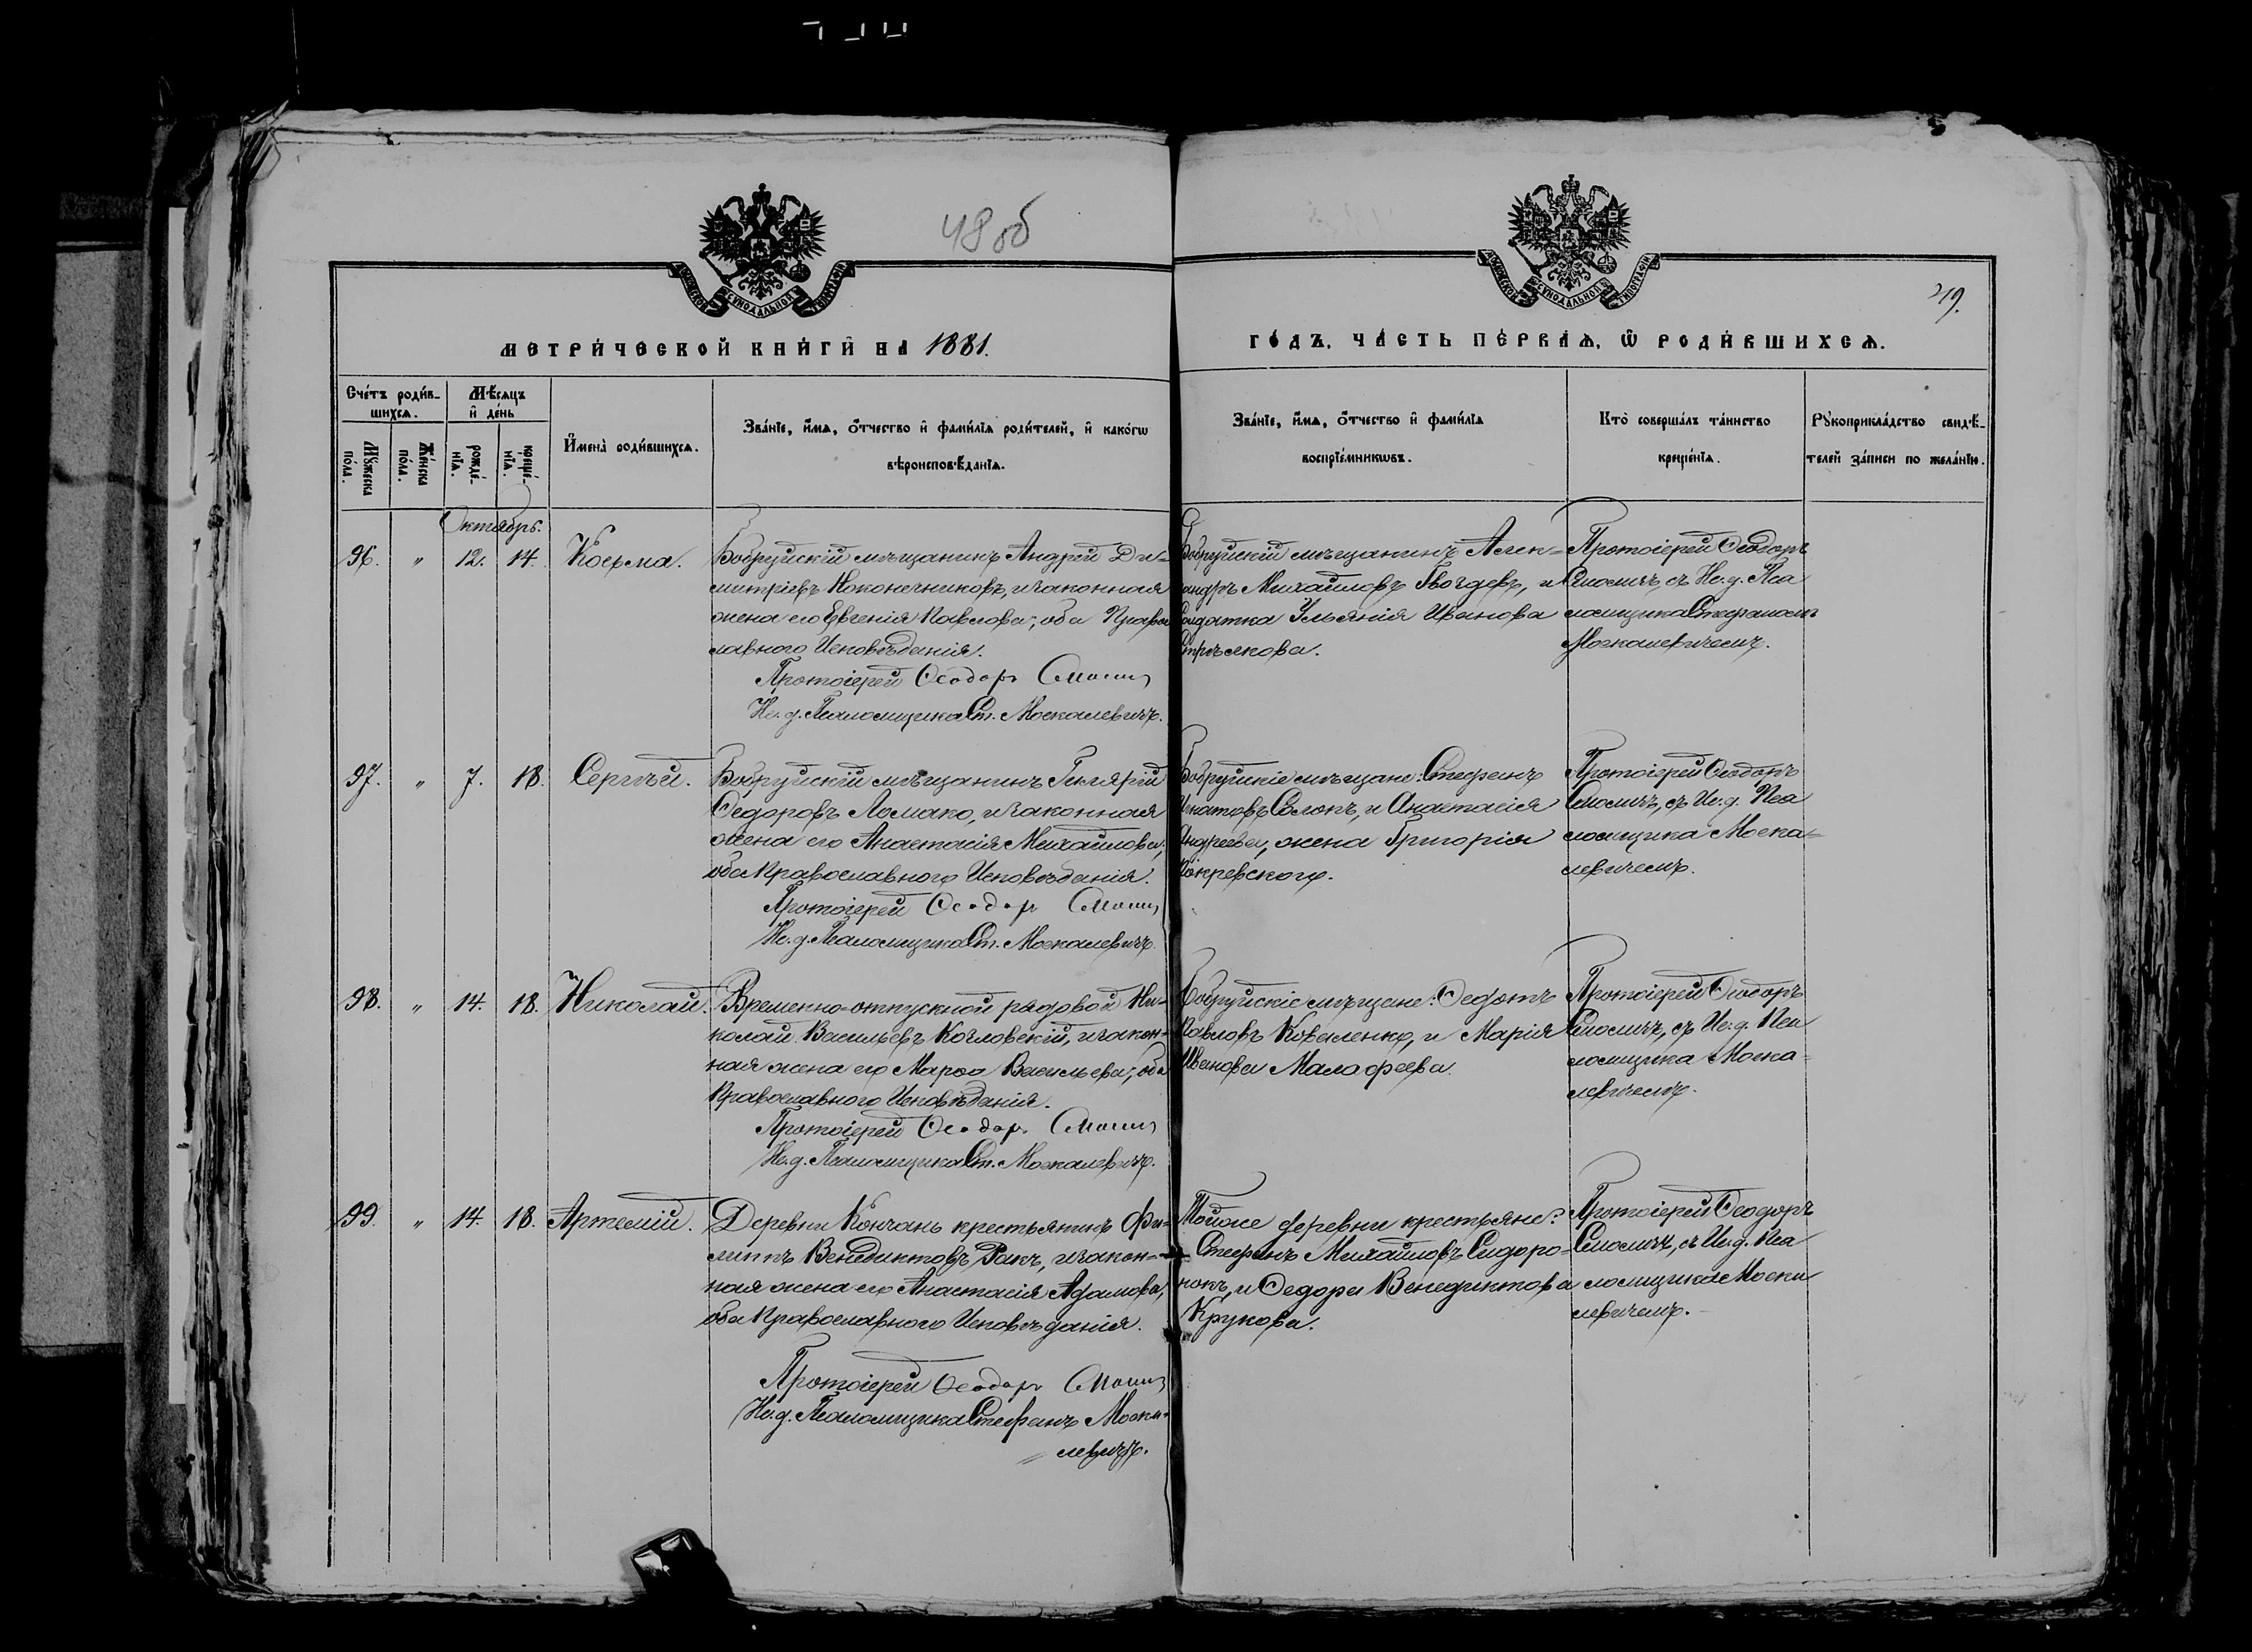 48 об
49.
МОСКОВСКОЙ СУНОДАЛЬНОЙ ТИПОГРАФІИ
МОСКОВСКОЙ СУНОДАЛЬНОЙ ТИПОГРАФІИ
МЕТРИ́ЧЕСКОЙ КНИ́ГИ НА 1881.
ГО́ДЪ, ЧА́СТЬ ПЕ́РВАѦ, Ѡ РОДИ́ВШИХСѦ.
Сче́тъ роди́в-
шихсѧ.
Мѣсѧцъ
и де́нь
Мꙋ́жеска
по́ла.
Же́нска
по́ла.
рожде́-
нїѧ.
креще́-
нїѧ.
Имена̀ роди́вшихсѧ.
Зва́нїе, и́мѧ, о́тчество и фами́лїѧ роди́телей, и како́гѡ
вѣроисповѣ́данїѧ.
Зва́нїе, и́мѧ, о́тчество и фами́лїѧ
воспрїе́мникѡвъ.
Кто̀ соверша́лъ та́инство
креще́нїѧ.
Рꙋкоприкла́дство свидѣ́-
телей за́писи по жела́нїю.
Октябрь.
96. " 12. 14. Косма.
Бобруйскій мѣщанинъ Андрей Ди-
митріевъ Наконечниковъ, и законная
жена его Евгенія Павлова; оба Право
славнаго Исповѣданія.
Протоіерей Ѳеодоръ Смолич
Ис. д. Псаломщика Ст. Москалевичъ.
Бобруйскій мѣщанинъ Алек-
сандръ Михаиловъ Гвоздевъ, и
Солдатка Ульянія Иванова
Стрѣлкова.
Протоіерей Ѳеодоръ
Смоличъ, съ Ис. д. Пса
ломщика Стефаномъ
Москалевичемъ.
97. " 7. 18. Сергѣй.
Бобруйскій мѣщанинъ Гиляріи
Ѳедоровъ Ломако, и законная
жена его Анастасія Михаилова,
оба Православнаго Исповѣданія.
Протоіерей Ѳеодоръ Смолич
Ис. д. Псаломщика Ст. Москалевичъ.
Бобруйскіе мѣщане: Стефанъ
Игнатовъ Солопъ, и Анастасія
Андреева, жена Григорія
Протоіерей Ѳеодоръ
Смоличъ, съ Ис. д. Пса
ломщика Моска-
левичемъ.
98. " 14. 18. Николай.
Временно-отпускной рядовой Ни-
колай Васильевъ Козловскій, и закон-
ная жена его Марѳа Васильева; оба
Православнаго Исповѣданія.
Протоіерей Ѳеодоръ Смолич
Ис. д. Псаломщика Ст. Москалевичъ.
Бобруйскіе мѣщане: Ѳедотъ
Павловъ Коваленко, и Марія
Иванова Малафеева.
Протоіерей Ѳеодоръ
Смоличъ, съ Ис. д. Пса
ломщика Моска-
левичемъ.
99. " 14. 18. Артемій.
Деревни Кончанъ крестьянинъ Фи-
липпъ Венедиктовъ Ракъ, и закон-
ная жена его Анастасія Адамова,
оба Православнаго Исповѣданія.
Протоіерей Ѳеодоръ Смолич
Ис. д. Псаломщика Стефанъ Моска-
левичъ.
Тойже деревни крестьяне:
Стефанъ Михаиловъ Сидоро-
нокъ, и Ѳедора Венедиктова
Крукова.
Протоіерей Ѳеодоръ
Смоличъ, съ Ис. д. Пса
ломщика Моска
левичемъ.